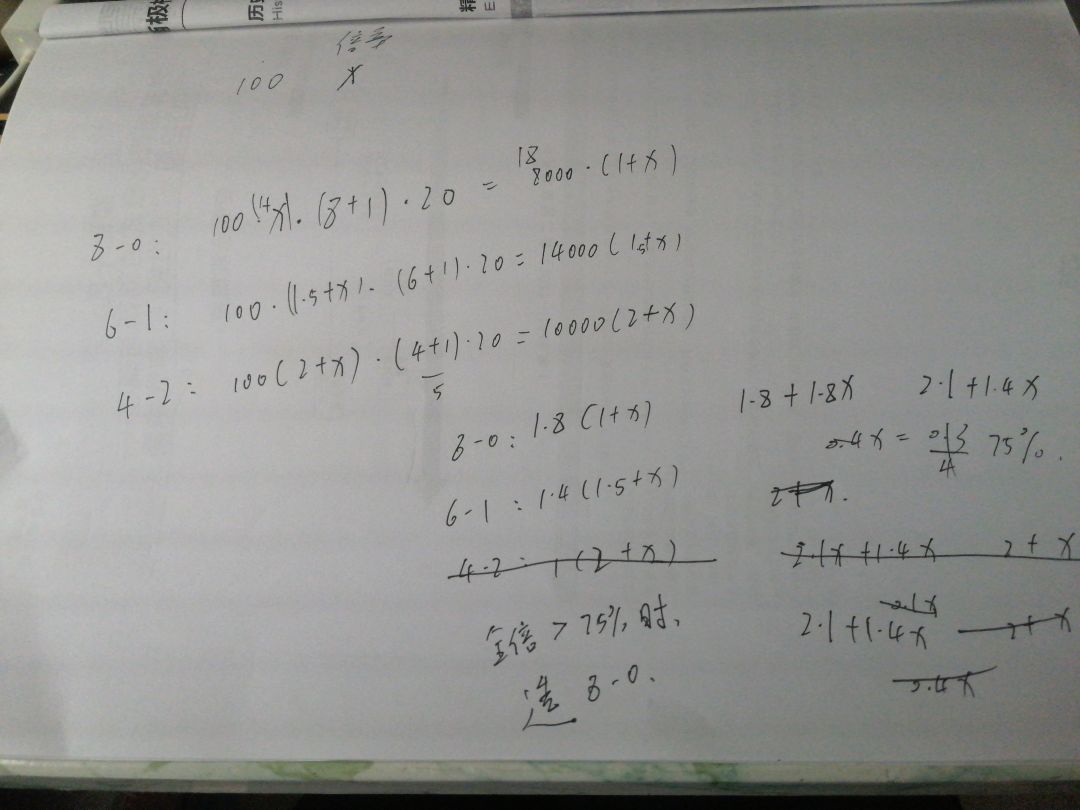 历史
His
精
E
倍率
100 x
8-0: 100(1+x)·(8+1)·20 = 18000·(1+x)
6-1: 100·(1.5+x)·(6+1)·20 = 14000(1.5+x)
4-2: 100(2+x)·(4+1)·20 = 10000(2+x)
5
8-0: 1.8(1+x)
1.8+1.8x 2.1+1.4x
0.4x = 0.3/4 75%.
6-1: 1.4(1.5+x)
2+x.
4-2: 1(2+x)
2.1x+1.4x 2+x
0.1x
2.1+1.4x 2+x
0.4x
全倍>75%时,
选 8-0.